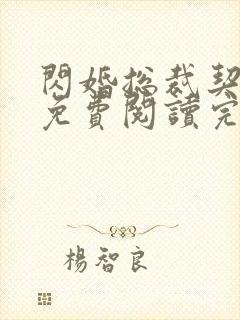 閃婚总裁契
免費閱讀完
楊智良